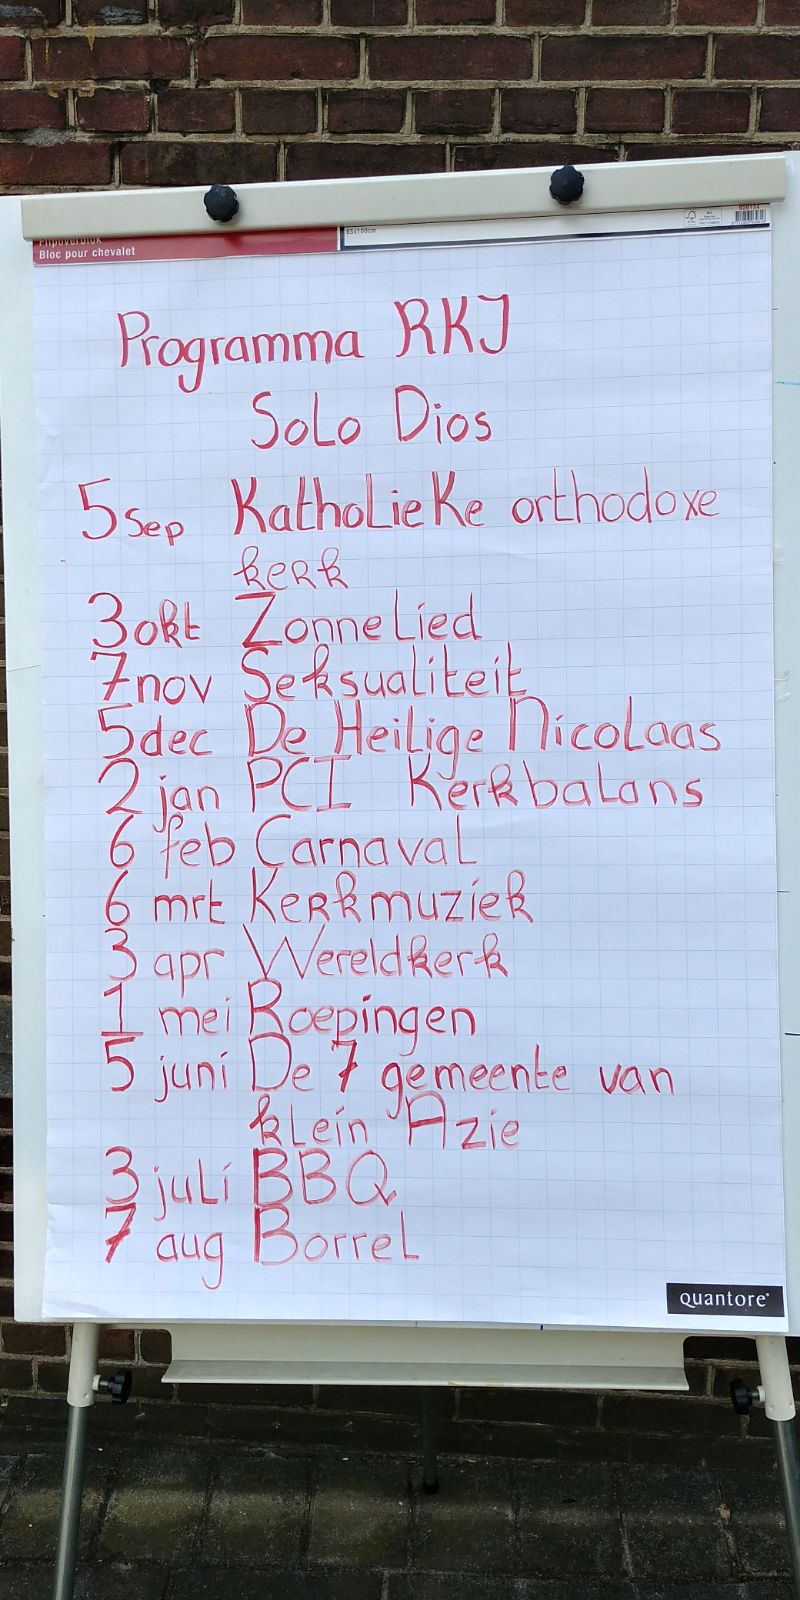 Bloc pour chevalet
65x100cm
Programma RKJ
Solo Dios
5 sep Katholieke orthodoxe
kerk
3 okt Zonnelied
7 nov Seksualiteit
5 dec De Heilige Nicolaas
2 jan PCI Kerkbalans
6 feb Carnaval
6 mrt Kerkmuziek
3 apr Wereldkerk
1 mei Roepingen
5 juni De 7 gemeente van
klein Azie
3 juli BBQ
7 aug Borrel
quantore